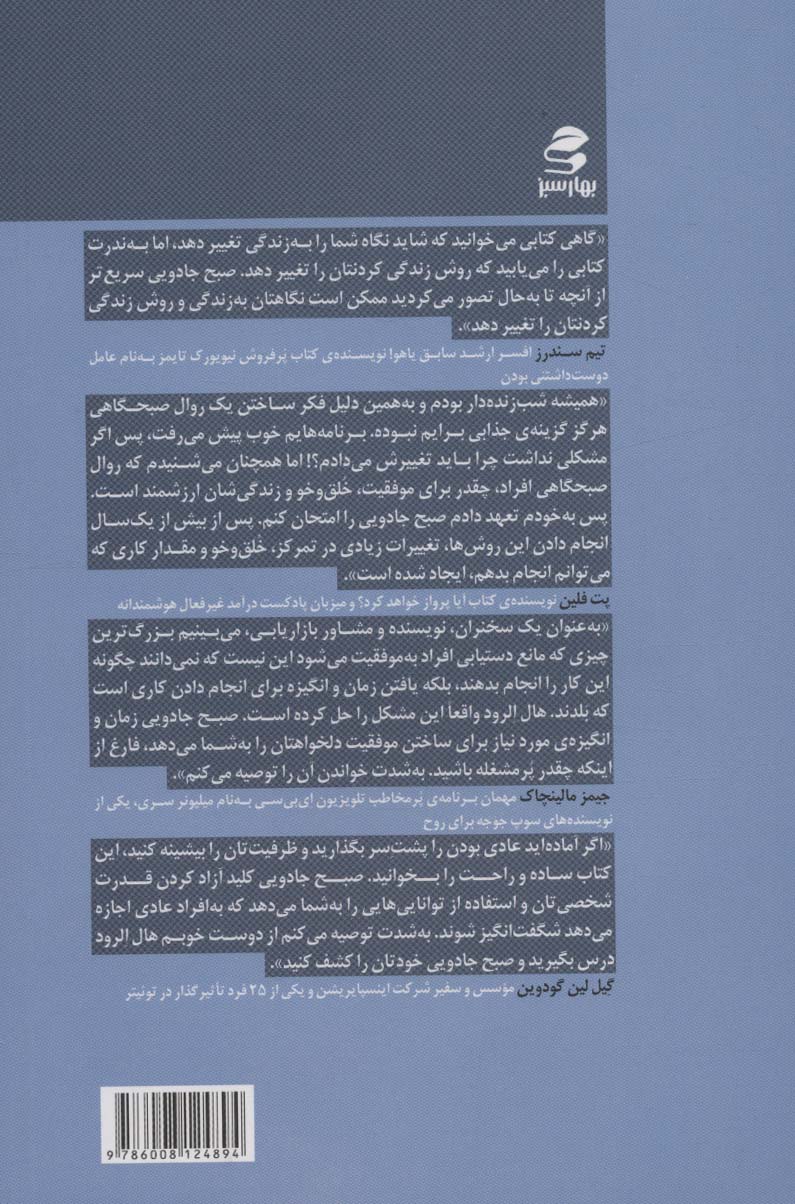 بهار سبز
«گاهی کتابی می‌خوانید که شاید نگاه شما را به‌زندگی تغییر دهد، اما به‌ندرت
کتابی را می‌یابید که روش زندگی کردنتان را تغییر دهد. صبح جادویی سریع‌تر
از آنچه تا به‌حال تصور می‌کردید ممکن است نگاهتان به‌زندگی و روش زندگی
کردنتان را تغییر دهد».
تیم سندرز افسر ارشد سابق یاهو! نویسنده‌ی کتاب پرفروش نیویورک تایمز به‌نام عامل
دوست‌داشتنی بودن
«همیشه شب‌زنده‌دار بودم و به‌همین دلیل فکر ساختن یک روال صبحگاهی
هرگز گزینه‌ی جذابی برایم نبوده. برنامه‌هایم خوب پیش می‌رفت، پس اگر
مشکلی نداشت چرا باید تغییرش می‌دادم؟! اما همچنان می‌شنیدم که روال
صبحگاهی افراد، چقدر برای موفقیت، خلق‌وخو و زندگی‌شان ارزشمند است.
پس به‌خودم تعهد دادم صبح جادویی را امتحان کنم. پس از بیش از یک‌سال
انجام دادن این روش‌ها، تغییرات زیادی در تمرکز، خلق‌وخو و مقدار کاری که
می‌توانم انجام بدهم، ایجاد شده است».
پت فلین نویسنده‌ی کتاب آیا پرواز خواهد کرد؟ و میزبان پادکست درآمد غیرفعال هوشمندانه
«به‌عنوان یک سخنران، نویسنده و مشاور بازاریابی، می‌بینیم بزرگ‌ترین
چیزی که مانع دستیابی افراد به‌موفقیت می‌شود این نیست که نمی‌دانند چگونه
این کار را انجام بدهند، بلکه یافتن زمان و انگیزه برای انجام دادن کاری است
که بلدند. هال الرود واقعاً این مشکل را حل کرده است. صبح جادویی زمان و
انگیزه‌ی مورد نیاز برای ساختن موفقیت دلخواهتان را به‌شما می‌دهد، فارغ از
اینکه چقدر پُرمشغله باشید. به‌شدت خواندن آن را توصیه می‌کنم».
جیمز مالینچاک مهمان برنامه‌ی پُرمخاطب تلویزیون ای‌بی‌سی به‌نام میلیونر سری، یکی از
نویسنده‌های سوپ جوجه برای روح
«اگر آماده‌اید عادی بودن را پشت‌سر بگذارید و ظرفیت‌تان را بیشینه کنید، این
کتاب ساده و راحت را بخوانید. صبح جادویی کلید آزاد کردن قدرت
شخصی‌تان و استفاده از توانایی‌هایی را به‌شما می‌دهد که به‌افراد عادی اجازه
می‌دهد شگفت‌انگیز شوند. به‌شدت توصیه می‌کنم از دوست خوبم هال الرود
درس بگیرید و صبح جادویی خودتان را کشف کنید».
گیل لین گودوین مؤسس و سفیر شرکت اینسپایریشن و یکی از ۲۵ فرد تأثیرگذار در توئیتر
9 786008 124894